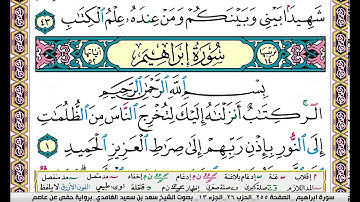 شَهِيدًا بَيْنِي وَبَيْنَكُمْ وَمَنْ عِندَهُۥ عِلْمُ ٱلْكِتَٰبِ ٤٣
سُورَةُ إِبْرَاهِيمَ
بِسْمِ ٱللَّهِ ٱلرَّحْمَٰنِ ٱلرَّحِيمِ
الٓر كِتَٰبٌ أَنزَلْنَٰهُ إِلَيْكَ لِتُخْرِجَ ٱلنَّاسَ مِنَ ٱلظُّلُمَٰتِ
إِلَى ٱلنُّورِ بِإِذْنِ رَبِّهِمْ إِلَىٰ صِرَٰطِ ٱلْعَزِيزِ ٱلْحَمِيدِ ١
سورة ابراهيم - الصفحة ٢٥٥ - الحزب ٢٦ - الجزء ١٣ - بصوت الشيخ سعد بن سعيد الغامدي - برواية حفص عن عاصم